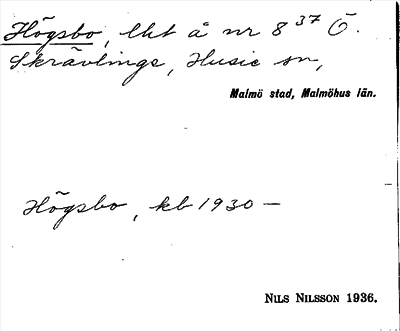 Högsbo, lht å nr 8³⁷ Ö.
Skrävlinge, Husie sn,
Malmö stad, Malmöhus län.
Högsbo, kb 1930 —
NILS NILSSON 1936.